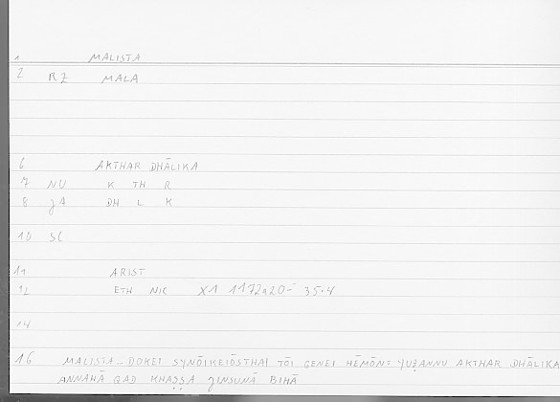 1 MALISTA
2 RZ MALA
6 AKTHAR DHĀLIKA
7 NU K TH R
8 JA DH L K
10 SL
11 ARIST
12 ETH NIC X1 1172a20- 35.4
14
16 MALISTA.. DOKEI SYNŌIKEIŌSTHAI TŌI GENEI HĒMŌN: YUẒANNU AKTHAR DHĀLIKA
ANNAHĀ QAD KHAṢṢA JINSUNĀ BIHĀ